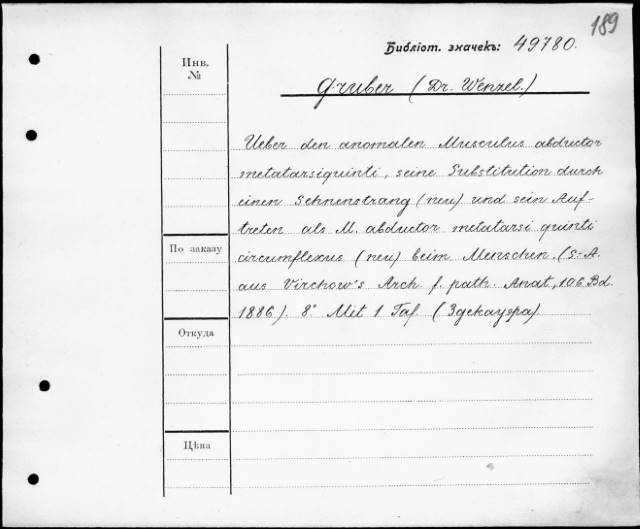 189
Библіот. значекъ: 49780.
Инв.
№
Gruber (Dr. Wenzel.)
Ueber den anomalen Musculus abductor
metatarsi quinti, seine Substitution durch
einen Sehnenstrang (neu) und sein Auf-
treten als M. abductor metatarsi quinti
По заказу
circumflexus (neu) beim Menschen. (S.-A.
aus Virchow's Arch f. path. Anat, 106 Bd.
1886). 8° Mit 1 Taf. (3 экземпляра)
Откуда
Цѣна